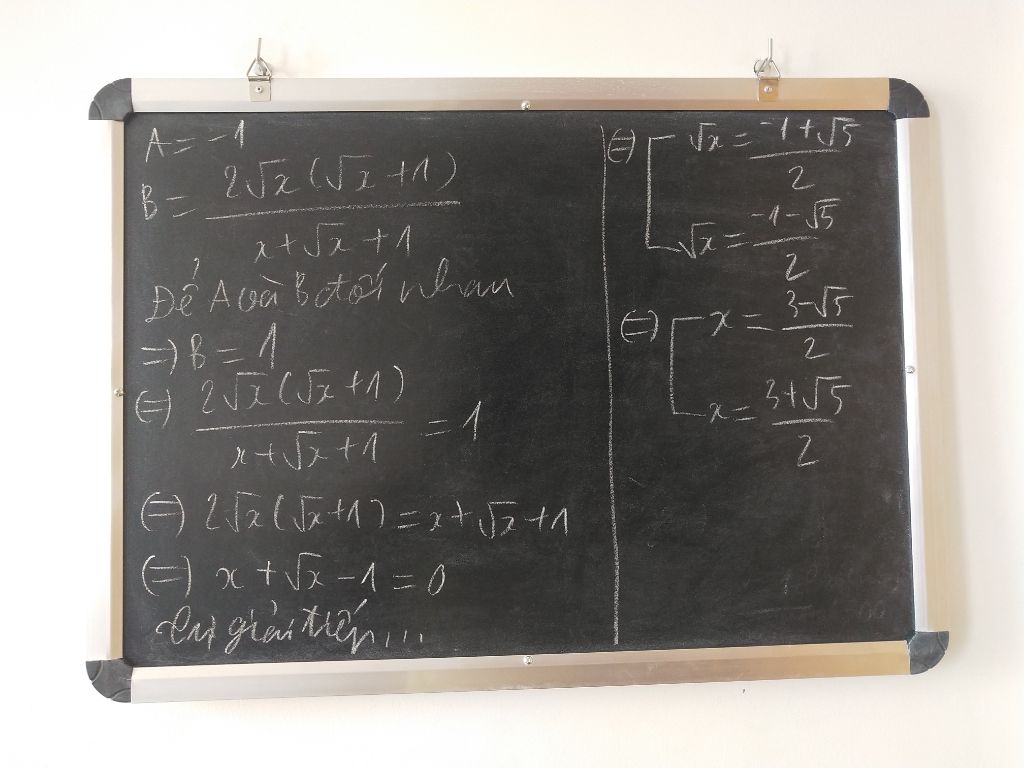 A = -1
B = 2√x(√x+1) / x+√x+1
Để A và B đối nhau
=) B = 1
(=) 2√x(√x+1) / x+√x+1 = 1
(=) 2√x(√x+1) = x+√x+1
(=) x+√x-1 = 0
giải tiếp...
(=) [ √x = -1+√5 / 2
√x = -1-√5 / 2
(=) [ x = 3-√5 / 2
x = 3+√5 / 2